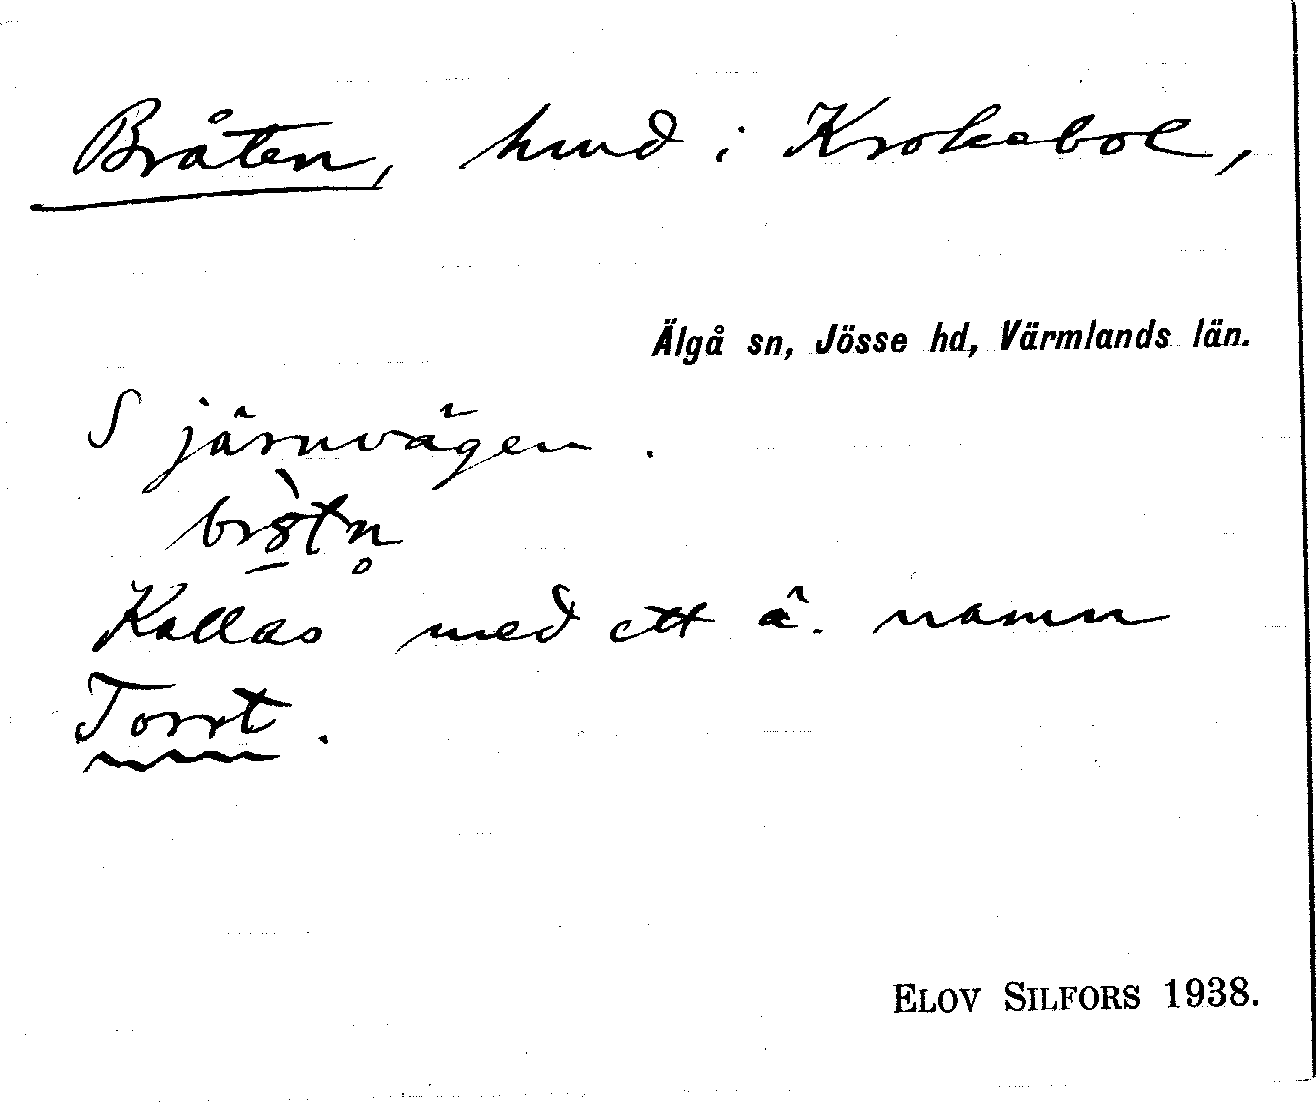 Bråten, hmd i Krokebol,
Älgå sn, Jösse hd, Värmlands län.
S järnvägen.
brötn̥
Kallas med ett ä. namn
Torrt.
ELOV SILFORS 1938.